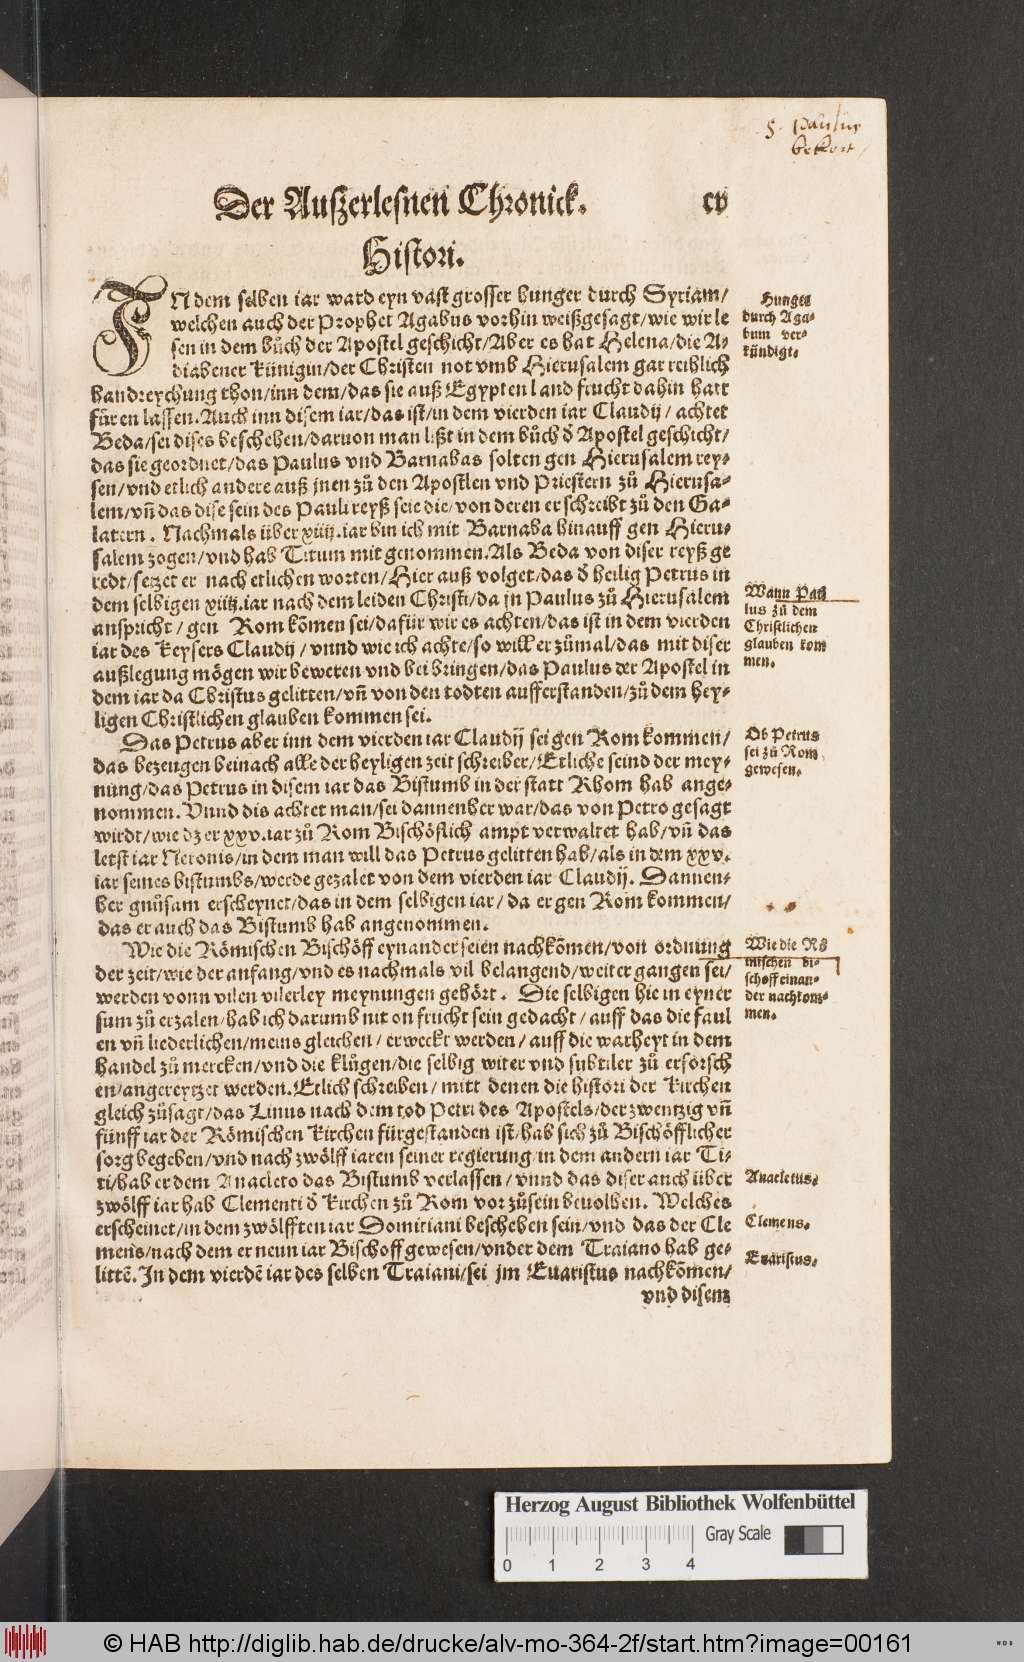 S. Paulus
bekort
Der Außerlesnen Chronick. cv
Histori.
IN dem selben iar ward eyn vast grosser hunger durch Syriam/
welchen auch der Prophet Agabus vorhin weißgesagt/wie wir le
sen in dem bůch der Apostel geschicht/Aber es hat Helena/die A⸗
diabener Künigin/der Christen not vmb Hierusalem gar reihlich
handreychung thon/inn dem/das sie auß Egypten land frucht dahin hatt
fůren lassen. Auch inn disem iar/das ist/in dem vierden iar Claudij/ achtet
Beda/sei dises beschehen/daruon man lißt in dem bůch d̕ Apostel geschicht/
das sie geordnet/das Paulus vnd Barnabas solten gen Hierusalem rey⸗
sen/vnd etlich andere auß jnen zů den Apostlen vnd Priestern zů Hierusa⸗
lem/vñ das dise sein des Pauli reyß seie die/von deren er schreibt zů den Ga⸗
latern. Nachmals über xiiij.iar bin ich mit Barnaba hinauff gen Hieru⸗
salem zogen/vnd hab Titum mit genommen. Als Beda von diser reyß ge
redt/setzet er nach etlichen worten/Hier auß volget/das d̕ heilig Petrus in
dem selbigen xiiij.iar nach dem leiden Christi/da jn Paulus zů Hierusalem
anspricht/gen Rom kõmen sei/dafür wir es achten/das ist in dem vierden
iar des Keysers Claudij/vnnd wie ich achte/so will er zůmal/das mit diser
außlegung mögen wir beweren vnd bei bringen/das Paulus der Apostel in
dem iar da Christus gelitten/vñ von den todten aufferstanden/zů dem hey⸗
ligen Christlichen glauben kommen sei.
Das Petrus aber inn dem vierden iar Claudij sei gen Rom kommen/
das bezeugen beinach alle der heyligen zeit schreiber/Etliche seind der mey⸗
nung/das Petrus in disem iar das Bistumb in der statt Rhom hab ange⸗
nommen. Vnnd dis achtet man/sei dannenher war/das von Petro gesagt
wirdt/wie dz er xxv.iar zů Rom Bischöflich ampt verwaltet hab/vñ das
letst iar Neronis/in dem man will das Petrus gelitten hab/als in dem xxv.
iar seines bistumbs/werde gezalet von dem vierden iar Claudij. Dannen⸗
her gnůsam erscheynet/das in dem selbigen iar/da er gen Rom kommen/
das er auch das Bistumb hab angenommen.
Wie die Römischen Bischöff eynander seien nachkõmen/von ordnung
der zeit/wie der anfang/vnd es nachmals vil belangend/weiter gangen sei/
werden vonn vilen vilerley meynungen gehört. Die selbigen hie in eyner
sum zů erzalen/hab ich darumb nit on frücht sein gedacht/auff das die faul
en vñ liederlichen/meins gleichen/erweckt werden/auff die warheyt in dem
handel zů mercken/vnd die klůgen/die selbig witer vnd subtiler zů erforsch
en/angereytzet werden. Etlich schreiben/mitt denen die histori der Kirchen
gleich zůsagt/das Linus nach dem tod Petri des Apostels/der zwentzig vñ
fünff iar der Römischen Kirchen fürgestanden ist/hab sich zů Bischöfflicher
sorg begeben/vnd nach zwölff iaren seiner regierung/in dem andern iar Ti⸗
ti/hab er dem Anacleto das Bistumb verlassen/vnnd das diser auch über
zwölff iar hab Clementi d̕ Kirchen zů Rom vor zůsein beuolhen. Welches
erscheinet/in dem zwölfften iar Domitiani beschehen sein/vnd das der Cle
mens/nach dem er neun iar Bischoff gewesen/vnder dem Traiano hab ge⸗
littẽ. In dem vierdẽ iar des selben Traiani/sei jm Euaristus nachkõmen/
vnd disem
Hunger
durch Aga⸗
bum ver⸗
kündigt.
Wann Pau
lus zů dem
Christlichen
glauben kom
men.
Ob Petrus
sei zů Rom
gewesen.
Wie die Rö
mischen bi⸗
schoff einan⸗
der nachkom⸗
men.
Anacletus.
Clemens.
Euaristus.
Herzog August Bibliothek Wolfenbüttel
Gray Scale
0 1 2 3 4
© HAB http://diglib.hab.de/drucke/alv-mo-364-2f/start.htm?image=00161